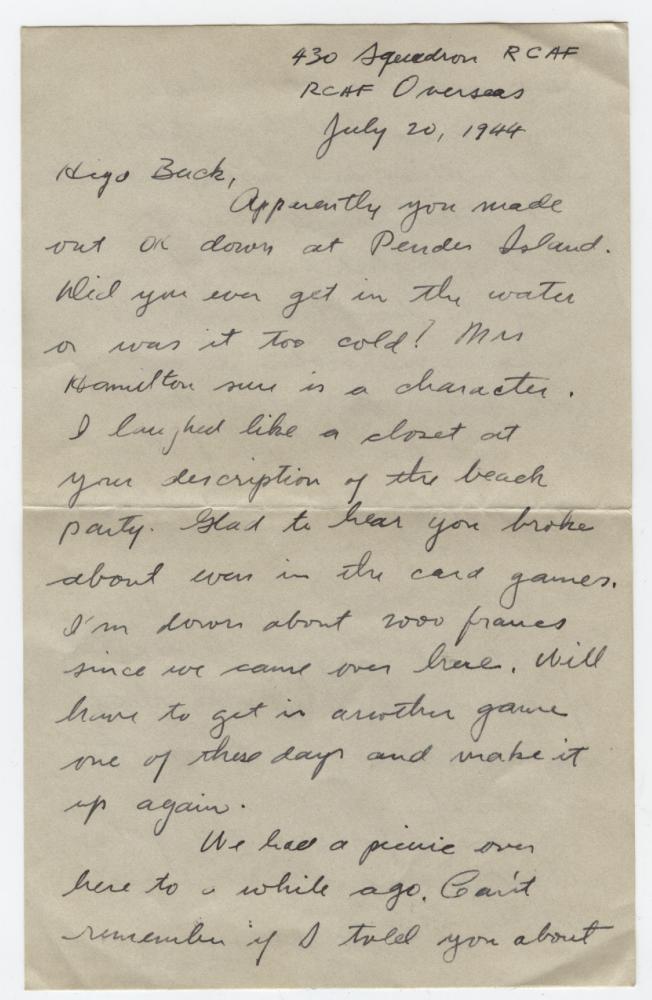 430 Squadron RCAF
RCAF Overseas
July 20, 1944
Hiyo Buck,
Apparently you made
out OK down at Pender Island.
Did you ever get in the water
or was it too cold? Mrs
Hamilton sure is a character.
I laughed like a closet at
your description of the beach
party. Glad to hear you broke
about even in the card games.
I'm down about 2000 francs
since we came over here. Will
have to get in another game
one of these days and make it
up again.
We had a picnic over
here to a while ago. Can't
remember if I told you about